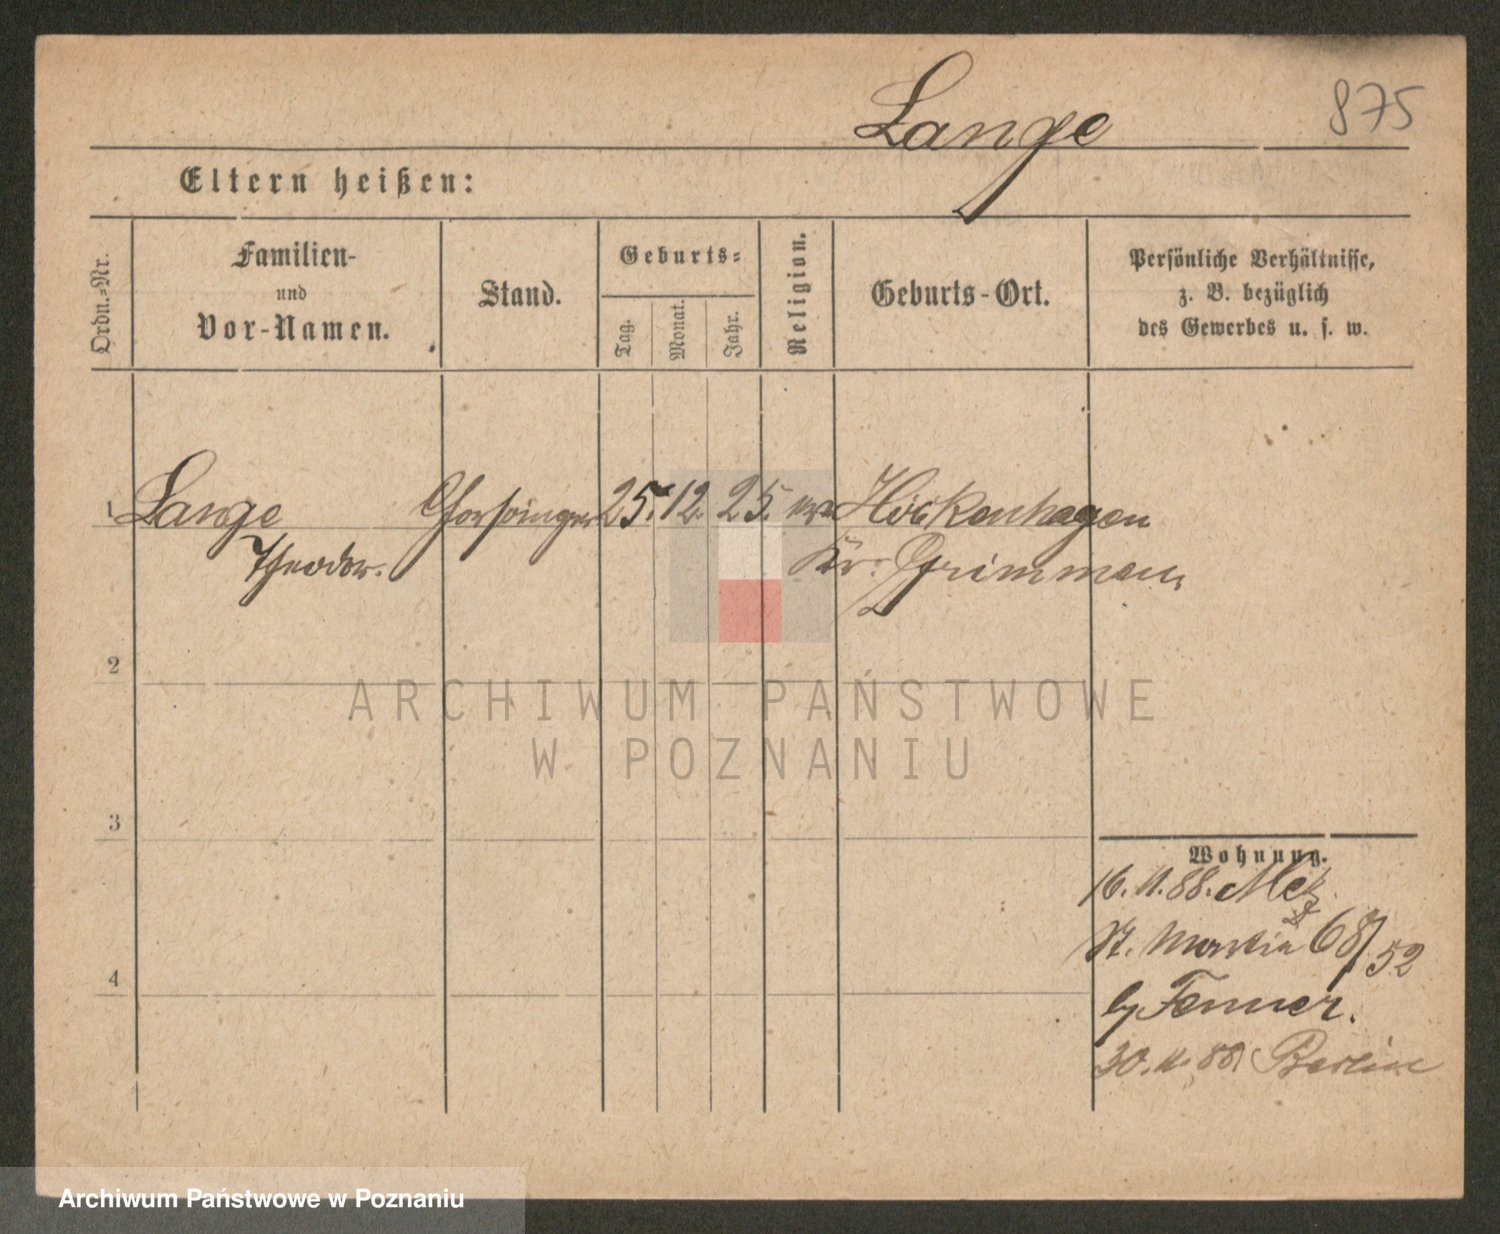 Lange
875
Eltern heißen:
Ordn.-Nr.
Familien-
und
Vor-Namen.
Stand.
Geburts-
Tag.
Monat.
Jahr.
Religion.
Geburts-Ort.
Persönliche Verhältnisse,
z. B. bezüglich
des Gewerbes u. s. w.
1 Lange 25. 12. 25.
Theodor. Kr. Grimmen
2
ARCHIWUM PAŃSTWOWE
W POZNANIU
3
Wohnung.
16. 11. 88. Metz
St. Martin 68/52
by Fenner.
4
30. 11. 88 Berlin
Archiwum Państwowe w Poznaniu